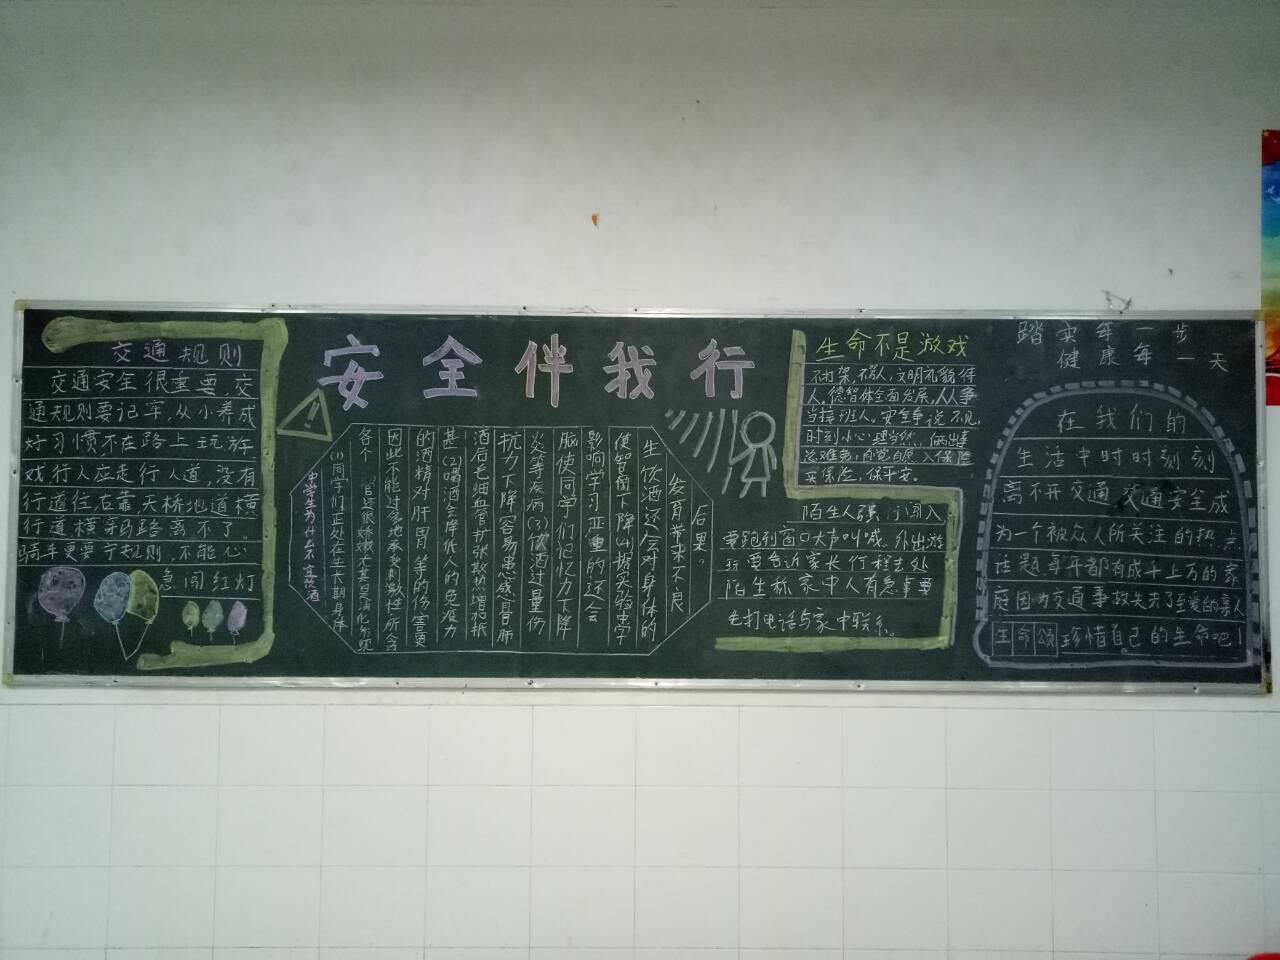 安全伴我行
交通规则
交通安全很重要,交
通规则要记牢,从小养成
好习惯不在路上玩游
戏行人应走行人道,没有
行道往右靠天桥地道横
行道横穿马路离不了。
骑车更要守规则,不能心
急闯红灯
中学生为什么不宜饮酒
(1)同学们正处在生长期身体
各个官还很娇嫩尤其是消化系统
因此不能过多地承受刺激性所含
的酒精对肝胃等的伤害更
甚(2)喝酒会降低人的免疫力
酒后毛细血管扩张散热增加抵
抗力下降容易患感冒肺
炎等疾病(3)饮酒过量伤
脑使同学们记忆力下降
影响学习严重的还会
使智商下降(4)据实验中学
生饮酒还会对身体的
发育带来不良
后果。
生命不是游戏
不打架,不骂人,文明礼貌待
人,德智体全面发展,人人争
当接班人。安全争说不见,
时刻小心理当然,
总难免,自觉自愿入保险
买保险,保平安。
陌生人强行闯入,
要跑到窗口大声叫喊。外出游
玩要告诉家长行程去处
陌生称家中人有急事要
先打电话与家中联系。
踏实每一步
健康每一天
在我们的
生活中时时刻刻
离不开交通,交通安全成
为一个被众人所关注的热点
话题每年都有成千上万的家
庭因为交通事故失去了至爱的亲人
生命颂珍惜自己的生命吧!